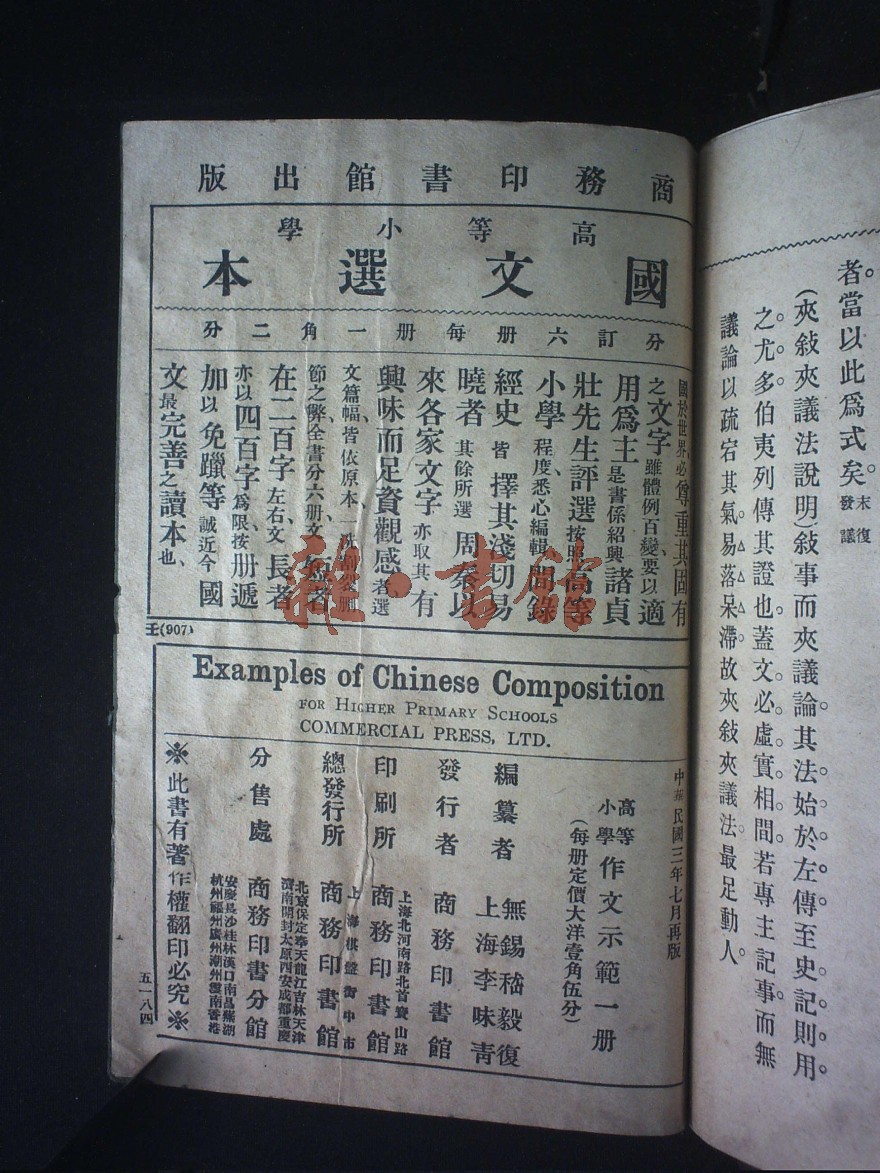 者。當以此爲式矣。末復發議
(夾敍夾議法說明)敍事而夾議論。其法始於左傳。至史記則用
之尤多。伯夷列傳其證也。蓋文必虛實相間。若專主記事而無
議論以疏宕其氣。易落呆滯。故夾敍夾議法。最足動人。
商務印書館出版
高等小學
國文選本
分訂六册每册一角二分
國於世界、必尊重其固有
之文字雖體例百變、要以適
用爲主是書係紹興諸貞
壯先生評選按照高等
小學程度、悉心編輯、間錄
經史皆擇其淺切易
曉者其餘所選周秦以
來各家文字亦取其有
興味而足資觀感者選
文篇幅、皆依原本、一洗
節之弊、全書分六册、文短者
在二百字左右、文長者
亦以四百字爲限、按册遞
加以免躐等誠近今國
文最完善之讀本也、
壬(907)
Examples of Chinese Composition
FOR HIGHER PRIMARY SCHOOLS
COMMERCIAL PRESS, LTD.
中華民國三年七月再版
高等小學作文示範一册
(每册定價大洋壹角伍分)
編纂者 無錫嵇毅復 上海李味青
發行者 商務印書館
印刷所 上海北河南路北首寶山路 商務印書館
總發行所 上海棋盤街中市 商務印書館
分售處 北京保定奉天龍江吉林天津
濟南開封太原西安成都重慶
商務印書分館
安慶長沙桂林漢口南昌蕪湖
杭州福州廣州潮州雲南香港
※此書有著作權翻印必究※
五一八四
雜·書館